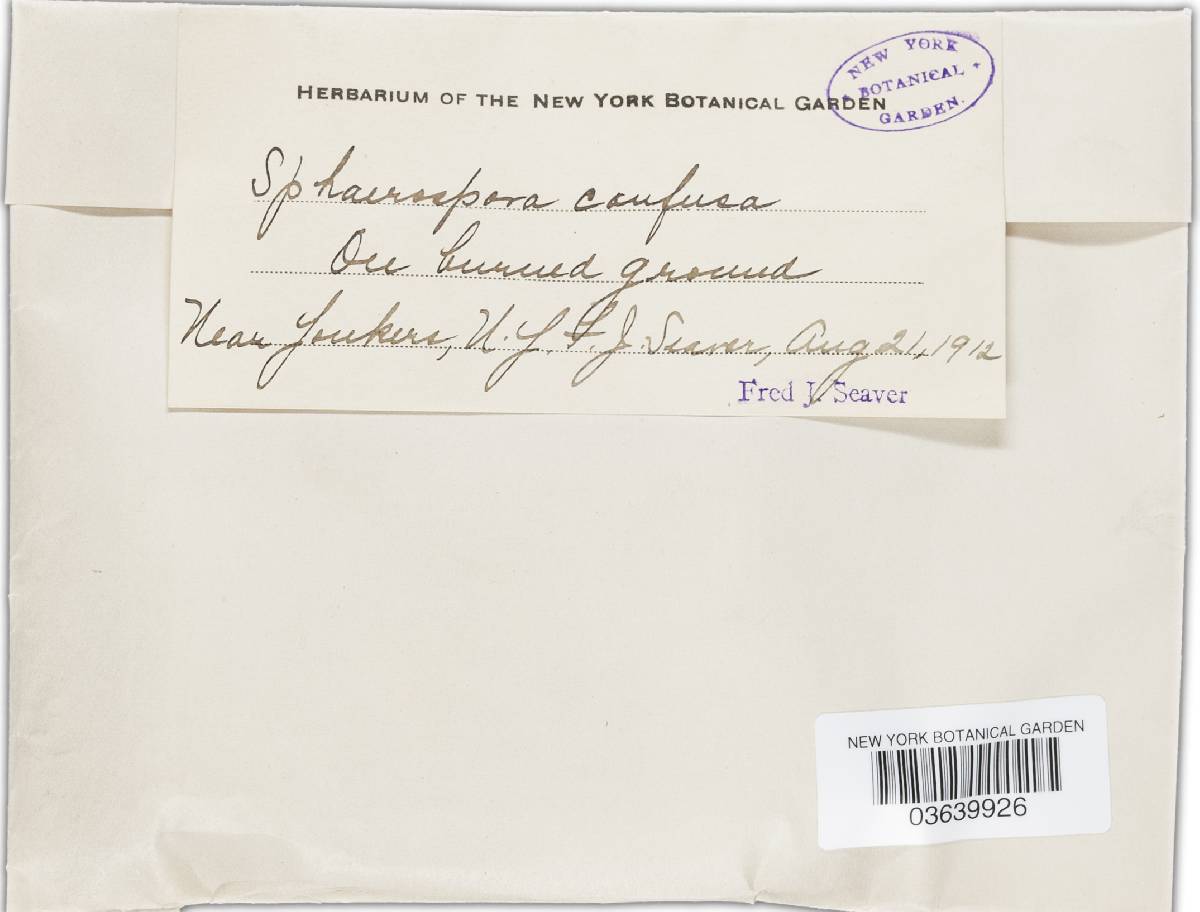 HERBARIUM OF THE NEW YORK BOTANICAL GARDEN
NEW YORK
BOTANICAL
GARDEN.
Sphaerospora confusa
On burned ground
Near Yonkers, N.Y. F.J. Seaver, Aug 21, 1912
Fred J. Seaver
NEW YORK BOTANICAL GARDEN
03639926